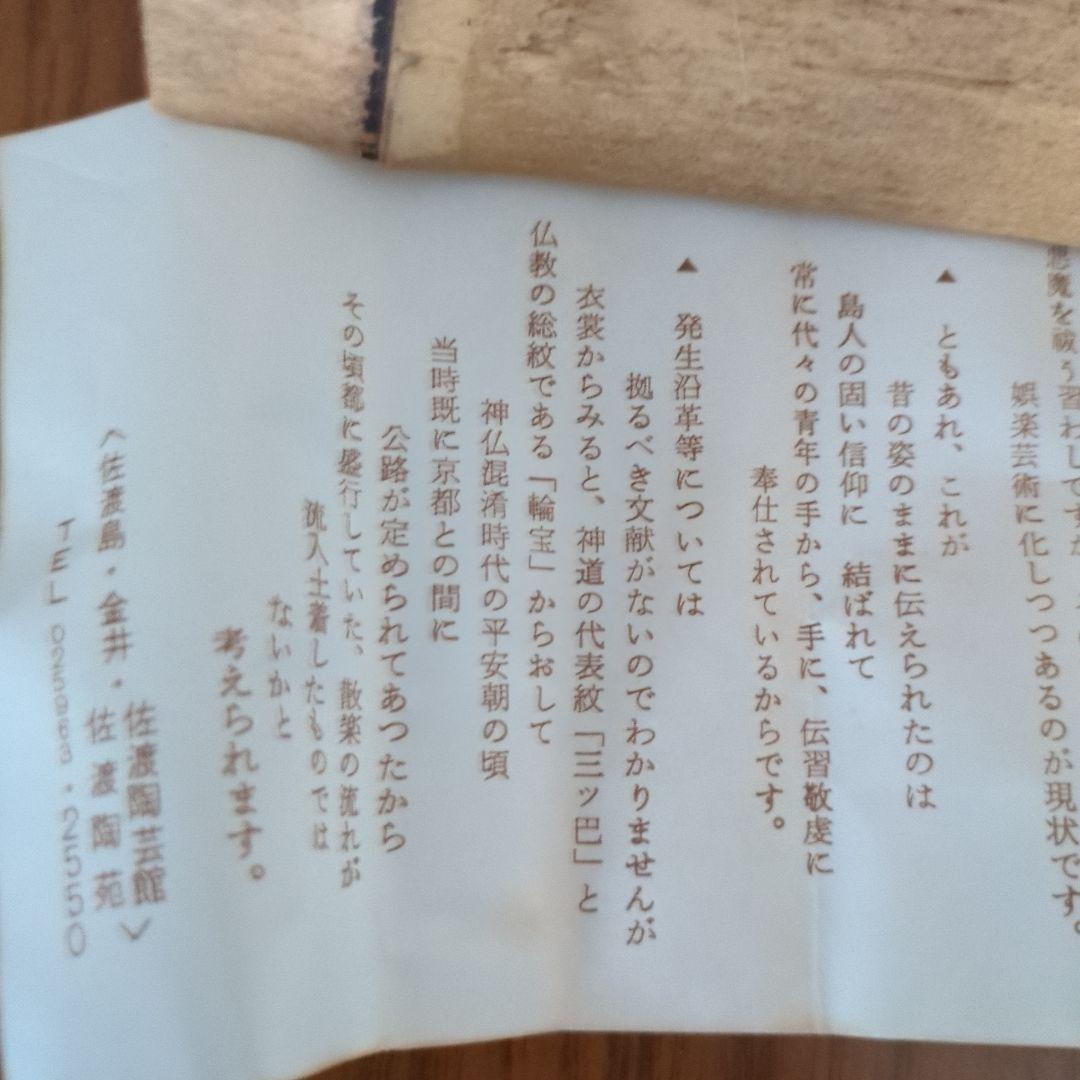 悪魔を祓う習わしですが
娯楽芸術に化しつつあるのが現状です。
▲ ともあれ、これが
昔の姿のままに伝えられたのは
島人の固い信仰に 結ばれて
常に代々の青年の手から、手に、伝習敬虔に
奉仕されているからです。
▲ 発生沿革等については
拠るべき文献がないのでわかりませんが
衣裳からみると、神道の代表紋「三ッ巴」と
仏教の総紋である「輪宝」からおして
神仏混淆時代の平安朝の頃
当時既に京都との間に
公路が定められてあつたから
その頃都に盛行していた、散楽の流れが
流入土着したものでは
ないかと
考えられます。
佐渡陶芸館〉
〈佐渡島・金井・佐渡陶苑
TEL 025963・2550